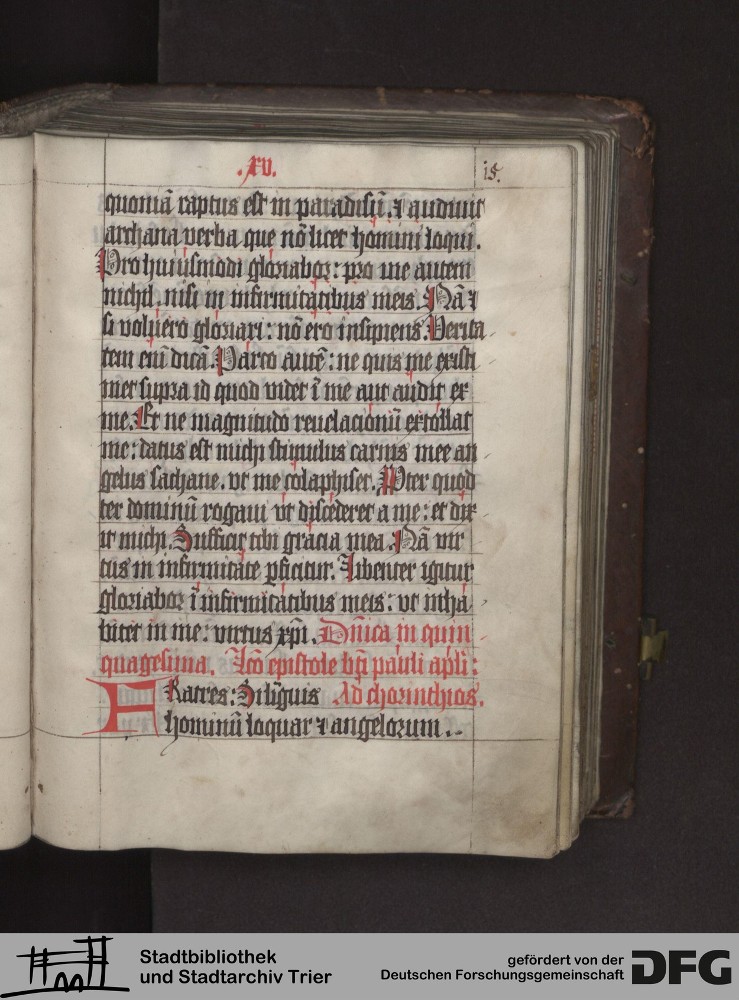 .xv.
15.
quoniā raptus est in paradisū. ⁊ audiuit
archana verba que nō licet homini loqui.
Pro huiusmodi gloriabor: pro me autem
nichil. nisi in infirmitatibus meis. Nā ⁊
si voluero gloriari: nō ero insipiens. Verita
tem enī dicā. Parco autē: ne quis me existi
met supra id quod videt ī me aut audit ex
me. Et ne magnitudo reuelacionū extollat
me: datus est michi stimulus carnis mee an
gelus sathane. vt me colaphiset. Pter quod
ter dominū rogaui vt discederet a me: et dix
it michi. Sufficit tibi gracia mea. Nā vir
tus in infirmitate pficitur. Libenter igitur
gloriabor ī infirmitatibus meis: vt inha
bitet in me: virtus xpi. Dn̄ica in quin
quagesima. Lc̄o epistole bt̄i pauli apli:
FRatres: Si līguis Ad chorinthios.
hominū loquar ⁊ angelorum..
Stadtbibliothek
und Stadtarchiv Trier
gefördert von der
Deutschen Forschungsgemeinschaft
DFG